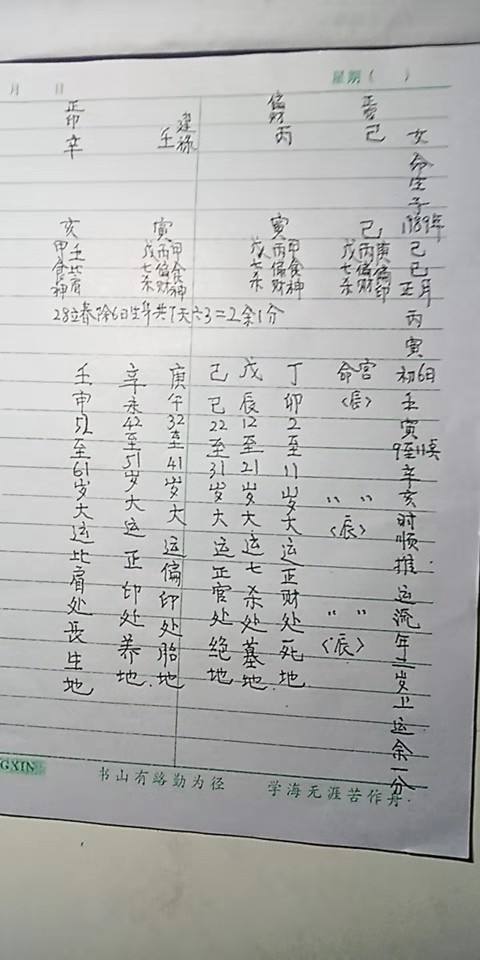 月 日 星期( )
女命生于1989年己巳正月丙寅初6日壬寅9至11点辛亥时顺推运流年二岁上运余一分
己
偏财 丙
建禄 壬
正印 辛
己 丙庚 戊偏偏 七财印 杀
寅 戊丙甲 七偏食 杀财神
寅 戊丙甲 七偏食 杀财神
亥 甲壬 食比 神肩
28立春除6日生年共7天六3=2余1分
命宫〈辰〉 〃 〃〈辰〉 〃 〃〈辰〉
丁卯2至11岁大运正财处死地
戊辰12至21岁大运七杀处墓地
己巳22至31岁大运正官处绝地
庚午32至41岁大运偏印处胎地
辛未42至51岁大运正印处养地
壬申52至61岁大运比肩处长生地
GXIN 书山有路勤为径 学海无涯苦作舟